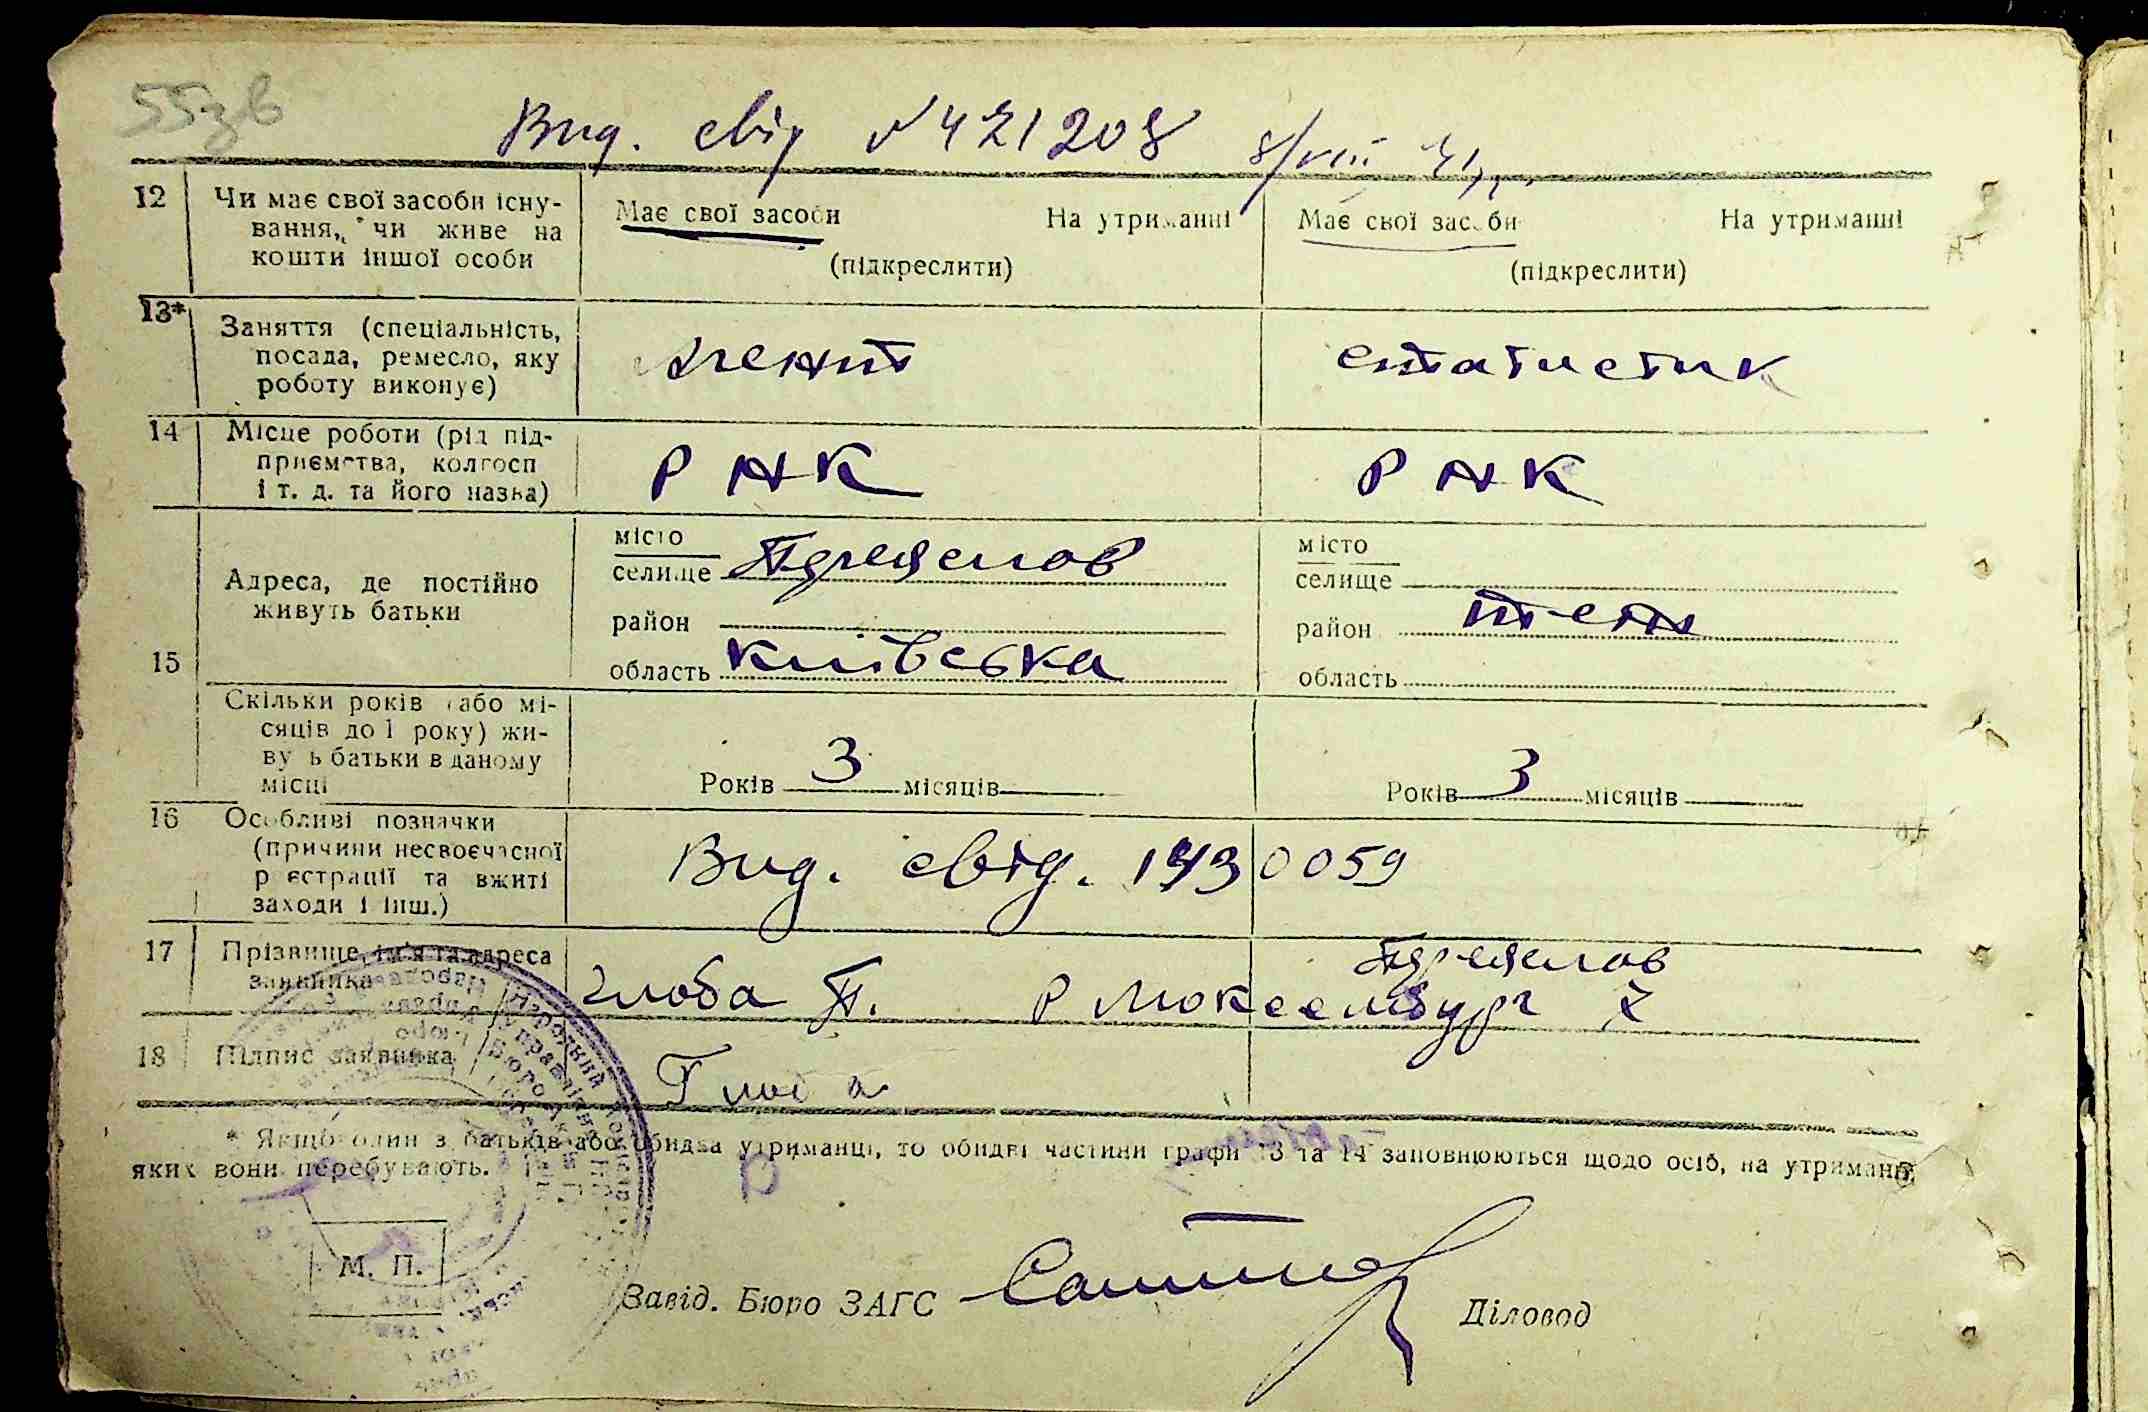 55зв
Вид. свід № 421208 8/VIII 41
12 Чи має свої засоби існування, чи живе на кошти іншої особи
Має свої засоби На утриманні
(підкреслити)
Має свої засоби На утриманні
(підкреслити)
13* Заняття (спеціальність,
посада, ремесло, яку
роботу виконує)
Агент
статистик
14 Місце роботи (рід під-
приємства, колгосп
і т. д. та його назва)
РНК
РНК
15
Адреса, де постійно
живуть батьки
місто
селище
район
область Київська
місто
селище
район
область
Скільки років (або мі-
сяців до 1 року) жи-
вуть батьки в даному
місці
Років 3 місяців
Років 3 місяців
16 Особливі позначки
(причини несвоєчасної
реєстрації та вжиті
заходи і інш.)
Вид. свід.
0059
17 Прізвище, ім'я та адреса
заявника
Глоба П. Р Люксембург
18 Підпис заявника
Глоба
* Якщо один з батьків або обидва утриманці, то обидві частини графи 13 та 14 заповнюються щодо осіб, на утриманні
яких вони перебувають.
М. П.
Завід. Бюро ЗАГС
Діловод